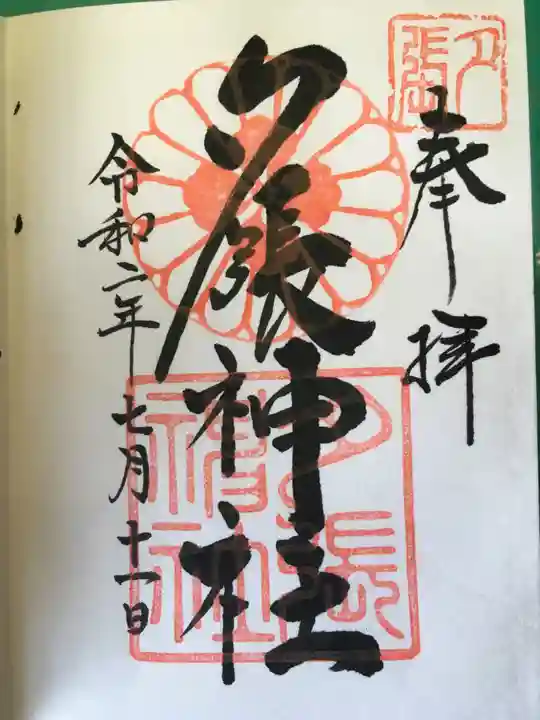 夕張
奉拝
夕張神社
夕張
神社
令和二年七月十一日